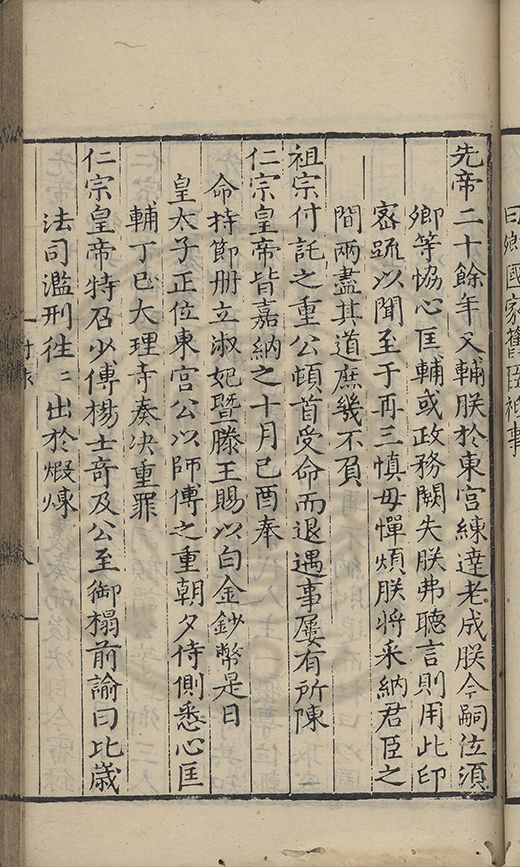 曰卿國家舊臣祗事
先帝二十餘年又輔朕於東宮練達老成朕今嗣位須
卿等協心匡輔或政務闕失朕弗聽言則用此印
密疏以聞至于再三慎毋憚煩朕將采納君臣之
間兩盡其道庶幾不負
祖宗付託之重公頓首受命而退遇事屢有所陳
仁宗皇帝皆嘉納之十月己酉奉
命持節册立淑妃暨滕王賜以白金鈔幣是日
皇太子正位東宮公以師傅之重朝夕侍側悉心匡
輔丁巳大理寺奏决重罪
仁宗皇帝特召少傅楊士奇及公至御榻前諭曰比歲
法司濫刑徃〻出於煆煉